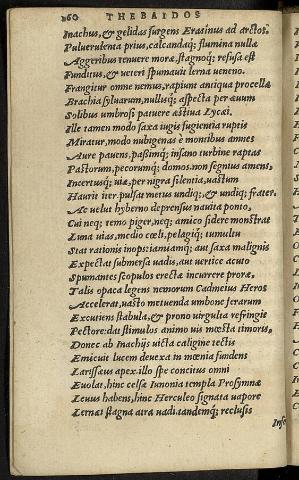 160 THEBAIDOS
Inachus, & gelidas surgens Erasinus ad arctos.
Puluerulenta prius, calcandaq; flumina nullæ
Aggeribus tenuere moræ, stagnoq; refusa est
Funditus, & ueteri spumauit lerna ueneno.
Frangitur omne nemus, rapiunt antiqua procellæ
Brachia syluarum, nullisq; aspecta per æuum
Solibus umbrosi patuere æstiua Lycæi.
Ille tamen modo saxa iugis fugientia ruptis
Miratur, modo nubigenas è montibus amnes
Aure pauens, passimq; insano turbine raptas
Pastorum, pecorumq; domos. non segnius amens,
Incertusq; uiæ, per nigra silentia, uastum
Haurit iter. pulsat metus undiq;, & undiq; frater.
Ac uelut hyberno deprensus nauita ponto,
Cui neq; temo piger, neq; amico sidere monstrat
Luna uias, medio cœli, pelagiq; tumultu
Stat rationis inops: iamiamq; aut saxa malignis
Expectat submersa uadis, aut uertice acuto
Spumantes scopulos erectæ incurrere proræ.
Talis opaca legens nemorum Cadmeius Heros
Accelerat, uasto metuenda umbone ferarum
Excutiens stabula, & prono uirgulta refringit
Pectore: dat stimulos animo uis mœsta timoris,
Donec ab Inachijs uicta caligine tectis
Emicuit lucem deuexa in mœnia fundens
Larissæus apex. illo spe concitus omni
Euolat, hinc celsæ Iunonia templa Prosymnæ
Leuus habens, hinc Herculeo signata uapore
Lernæi stagna atra uadi. tandemq; reclusis
Infe